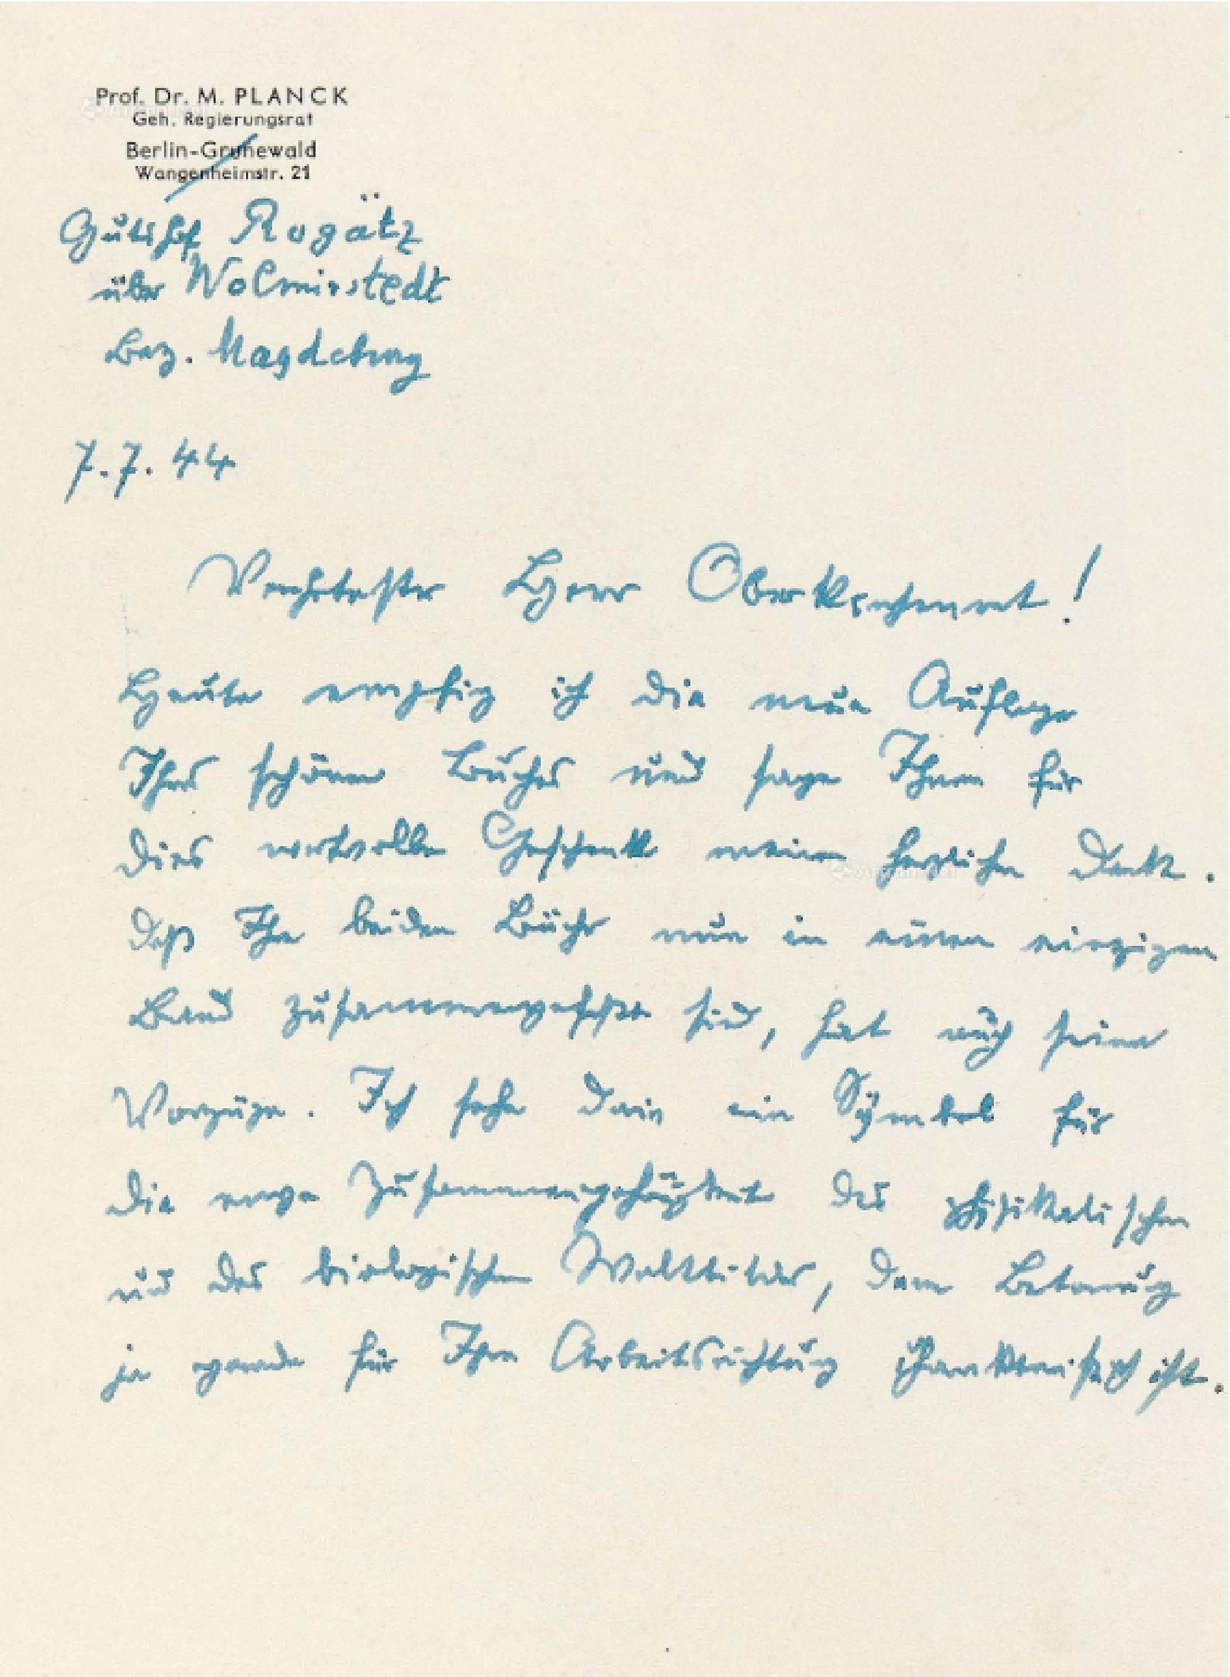 Prof. Dr. M. PLANCK
Geh. Regierungsrat
Berlin-Grunewald
Wangenheimstr. 21
Gutshof Rogätz
über Wolmirstedt
Bez. Magdeburg
7.7.44
Verehrtester Herr Oberkirchenrat!
Heute empfing ich die neue Auflage
Ihres schönen Buches und sage Ihnen für
dies wertvolle Geschenk meinen herzlichen Dank.
Daß Ihre beiden Bücher nun in einen einzigen
Band zusammengefaßt sind, hat auch seine
Vorzüge. Ich sehe darin ein Symbol für
die enge Zusammengehörigkeit des physikalischen
und des biologischen Weltbildes, deren Betonung
ja gerade für Ihre Arbeitsrichtung charakteristisch ist.